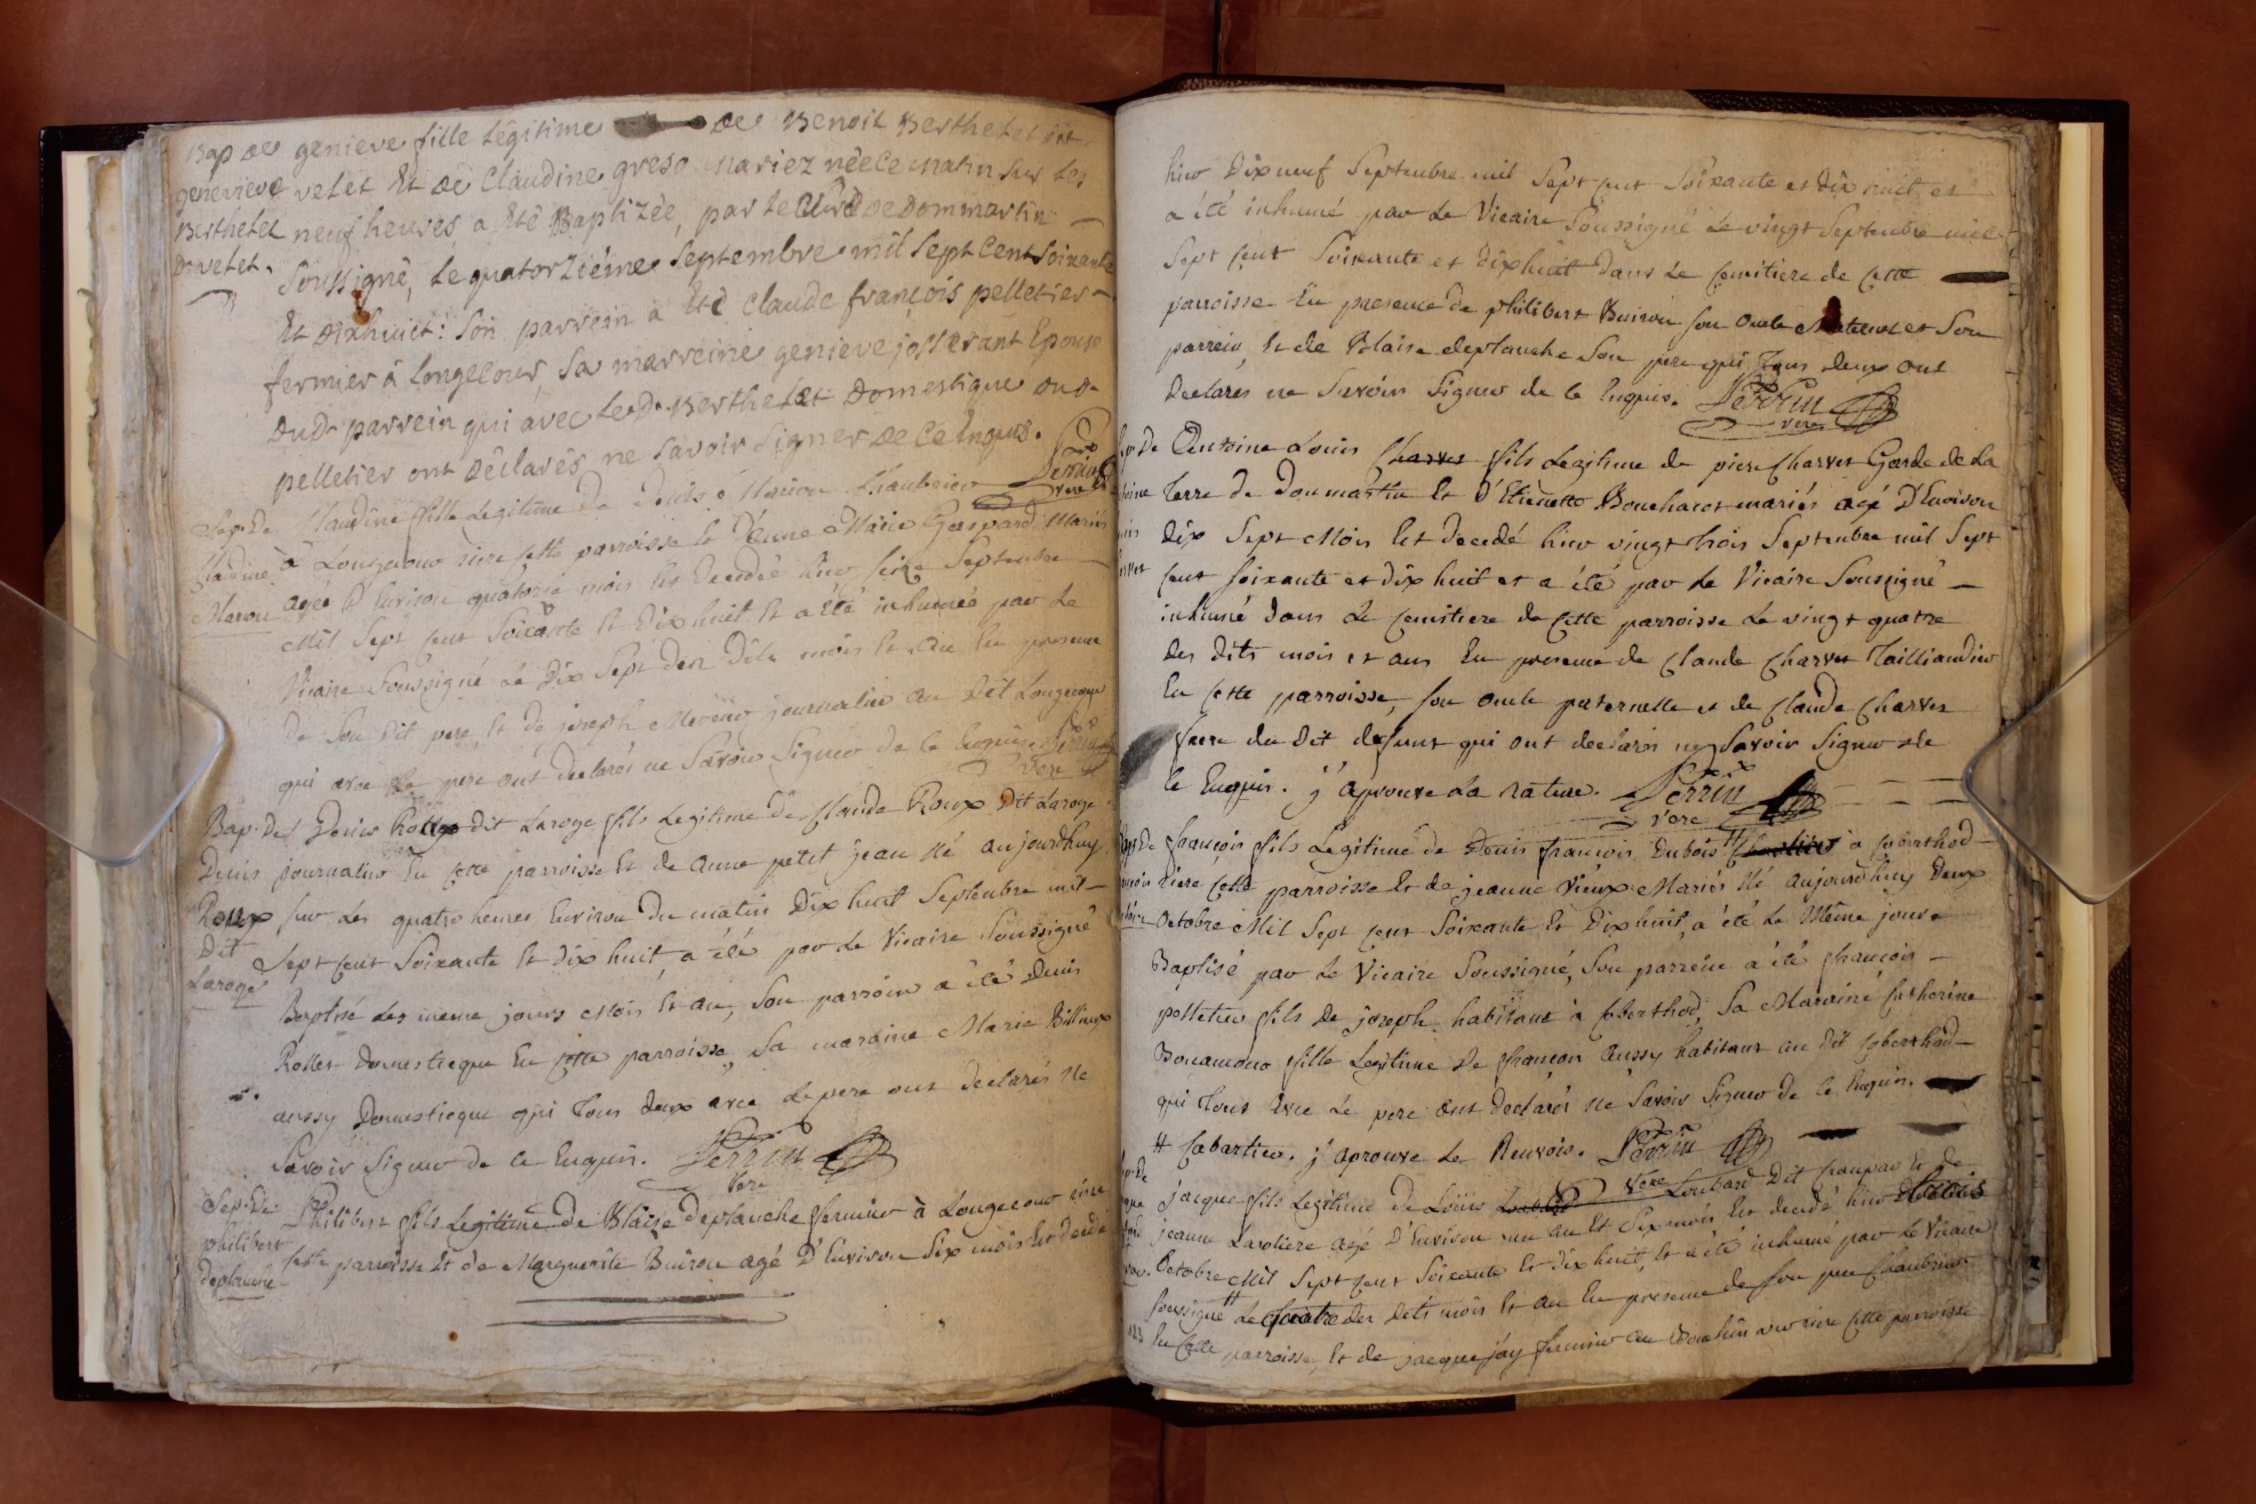 Bap de genieve fille Légitime de Benoit Berthelet dit
genevieve velet Et de Claudine greso mariez née ce matin sur les
Berthelet neuf heures a Eté Baptizée, par le Curé de Dommartin
D. velet. Soussigné, le quatorzième Septembre mil sept Cent soixante
Et dixhuict: son parrein a Eté Claude françois pelletier
fermier à longecour, sa marreine genieve josserant Epouse
Dud. parrein qui avec led. Berthelet Domestique dud.
pelletier ont déclarés ne savoir signer de ce Enquis.
Perrin
vere
Sep. De Claudine fille Legitime de Denis Maron
Claudine à Longecour riere cette parroisse et d'anne Marie Gaspard mariés
Maron agée d'Environ quatorze mois Est decedée hier seize Septembre
Mil Sept cent Soixante Et Dix huit Et a été inhumée par Le
Vicaire Soussigné Le Dix Sept des Dits mois Et an En presence
de Son dit pere, Et de joseph journalier au Dit Longecour
qui avec le pere ont declarés ne Savoir Signer de ce Enquis. Perrin
Vere
Bap. De Denis Roux dit Laroge fils Legitime de Claude Roux Dit Laroge
Denis journalier En cette parroisse Et de anne petit jean Né aujourdhuy
Roux sur Les quatre heures Environ du matin Dix huit Septembre mil
Dit Sept cent Soixante Et dix huit a été par Le Vicaire Soussigné
Laroge
Baptisé Les meme jours Mois Et an, Son parrein a été Denis
Rollet Domestique En cette parroisse, Sa maraine Marie
aussy Domestique qui Tous deux avec Le pere ont declarés Ne
Savoir Signer de ce Enquis. Perrin
Vere
Sep. De Philibert fils Legitime de Blaise Deplanche fermier à Longecour riere
philibert cette parroisse Et de Marguerite Buiron agé D'Environ Six mois Est decedé
deplanche
hier Dix neuf Septembre mil Sept cent Soixante et dix huit et
a été inhumé par Le Vicaire Soussigné Le vingt Septembre mil
Sept cent Soixante et dixhuit Dans Le Cemitiere de cette
parroisse En presence de philibert Buiron son oncle Maternel et Son
parrein, Et de Blaise deplanche Son pere qui Tous deux ont
Declarés ne Savoir Signer de ce Enquis. Perrin
vere
De Antoine Louis Charvet fils Legitime de piere Charvet Garde de La
Terre de Dommartin Et D'Etienette Boucharet mariés agé D'Environ
Dix Sept Mois Est Decedé hier vingt trois Septembre mil Sept
cent soixante et dix huit et a été par Le Vicaire Soussigné
inhumé dans Le cemitiere de cette parroisse Le vingt quatre
Des dits mois et an En presence de Claude Charvet Tailliandier
En cette parroisse, son oncle paternelle et de Claude Charvet
frere du Dit defunt qui ont declarés ne Savoir Signer de
ce Enquis. j'aprouve La rature. Perrin
Vere
De françois fils Legitime de Denis françois Dubois # à Coberthod
riere cette parroisse Et de jeanne Vieux Mariés Né aujourdhuy Deux
Octobre Mil Sept cent Soixante Et Dix huit, a été Le Même jour
Baptisé par Le Vicaire Soussigné, Son parrein a été françois
pelletier fils De joseph habitant à Coberthod, Sa Maraine Catherine
Bonamour fille Legitime De françois aussy habitant au dit Coberthod
qui Tous avec Le pere ont declarés Ne Savoir Signer De ce Enquis.
# Cabartier. j'aprouve Le Renvois. Perrin
Vere
jacque fils Legitime de Louis Loubard Dit Et de
jeanne Laroliere agé D'Environ un an Et Six mois Est decedé hier trois
Octobre Mil Sept cent Soixante Et dix huit, Et a été inhumé par Le Vicaire
soussigné # Le quatre des dits mois Et an En presence de son pere
En cette parroisse, Et de jacque jay fermier au riere cette parroisse